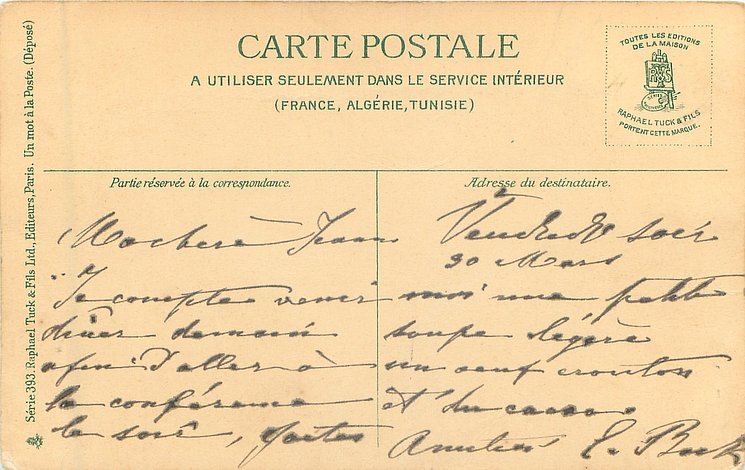 CARTE POSTALE
A UTILISER SEULEMENT DANS LE SERVICE INTÉRIEUR
(FRANCE, ALGÉRIE, TUNISIE)
TOUTES LES EDITIONS
DE LA MAISON
RAPHAEL TUCK & FILS
PORTENT CETTE MARQUE.
Série 393. Raphael Tuck & Fils Ltd., Editeurs, Paris. Un mot à la Poste. (Déposé)
Partie réservée à la correspondance.
Ma chère Jeanne
Je compte venir
dîner demain
afin d'aller à
la conférence
le soir, faites
Adresse du destinataire.
Vendredi soir
30 Mars
moi une petite
soupe légère
un oeuf crouton
et du cacao
E.